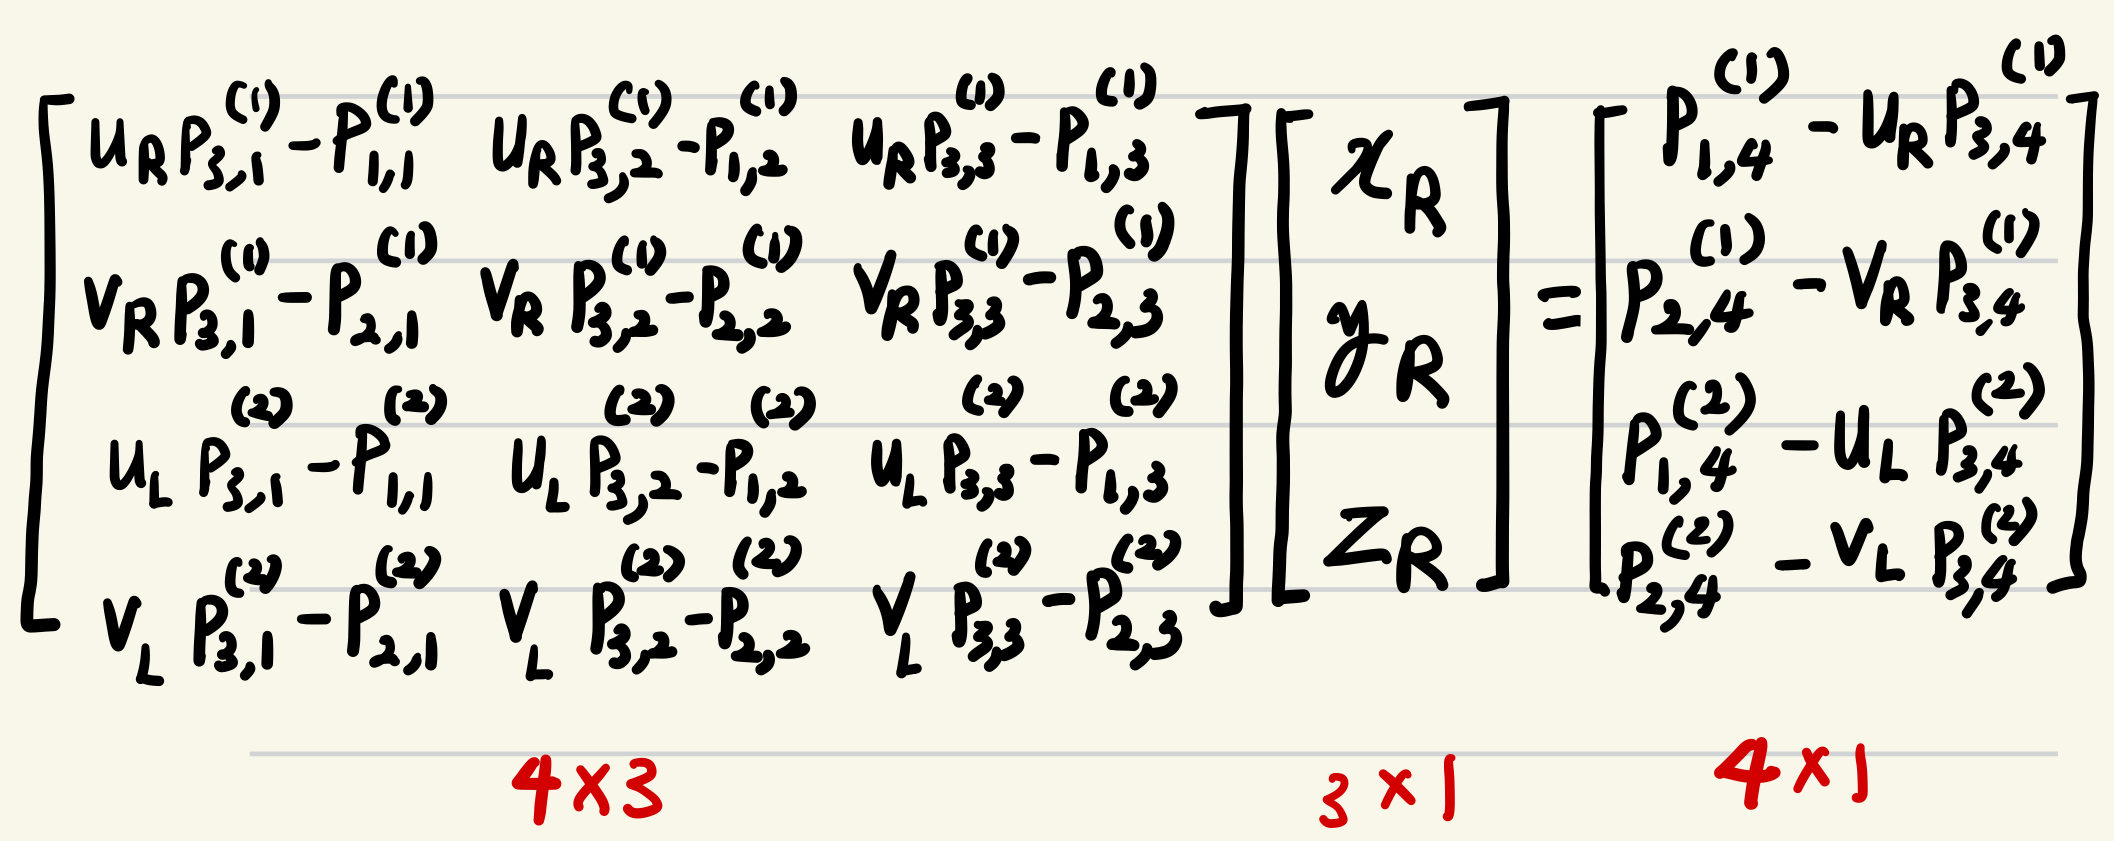 [ u_R P_{3,1}^{(1)} - P_{1,1}^{(1)}  u_R P_{3,2}^{(1)} - P_{1,2}^{(1)}  u_R P_{3,3}^{(1)} - P_{1,3}^{(1)} ] [ x_R ] = [ P_{1,4}^{(1)} - u_R P_{3,4}^{(1)} ]
[ v_R P_{3,1}^{(1)} - P_{2,1}^{(1)}  v_R P_{3,2}^{(1)} - P_{2,2}^{(1)}  v_R P_{3,3}^{(1)} - P_{2,3}^{(1)} ] [ y_R ] [ P_{2,4}^{(1)} - v_R P_{3,4}^{(1)} ]
[ u_L P_{3,1}^{(2)} - P_{1,1}^{(2)}  u_L P_{3,2}^{(2)} - P_{1,2}^{(2)}  u_L P_{3,3}^{(2)} - P_{1,3}^{(2)} ] [ z_R ] [ P_{1,4}^{(2)} - u_L P_{3,4}^{(2)} ]
[ v_L P_{3,1}^{(2)} - P_{2,1}^{(2)}  v_L P_{3,2}^{(2)} - P_{2,2}^{(2)}  v_L P_{3,3}^{(2)} - P_{2,3}^{(2)} ] [ P_{2,4}^{(2)} - v_L P_{3,4}^{(2)} ]
4×3  3×1  4×1